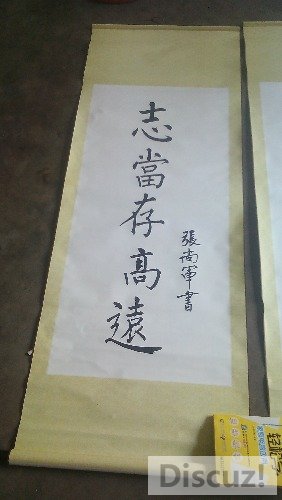 志當存高遠
張尚軍書
Discuz!